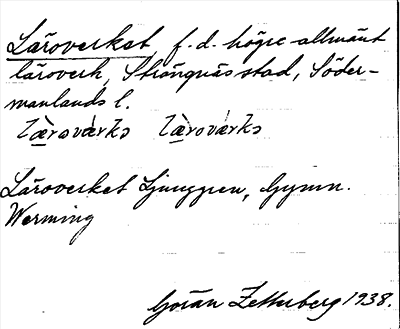 Läroverket, f.d. högre allmänt
läroverk, Strängnäs stad, Söder-
manlands l.
læ̀rovàrks læ̀rovarks
Läroverket Ljunggren, Gymn.
Werming
Göran Zetterberg 1938.